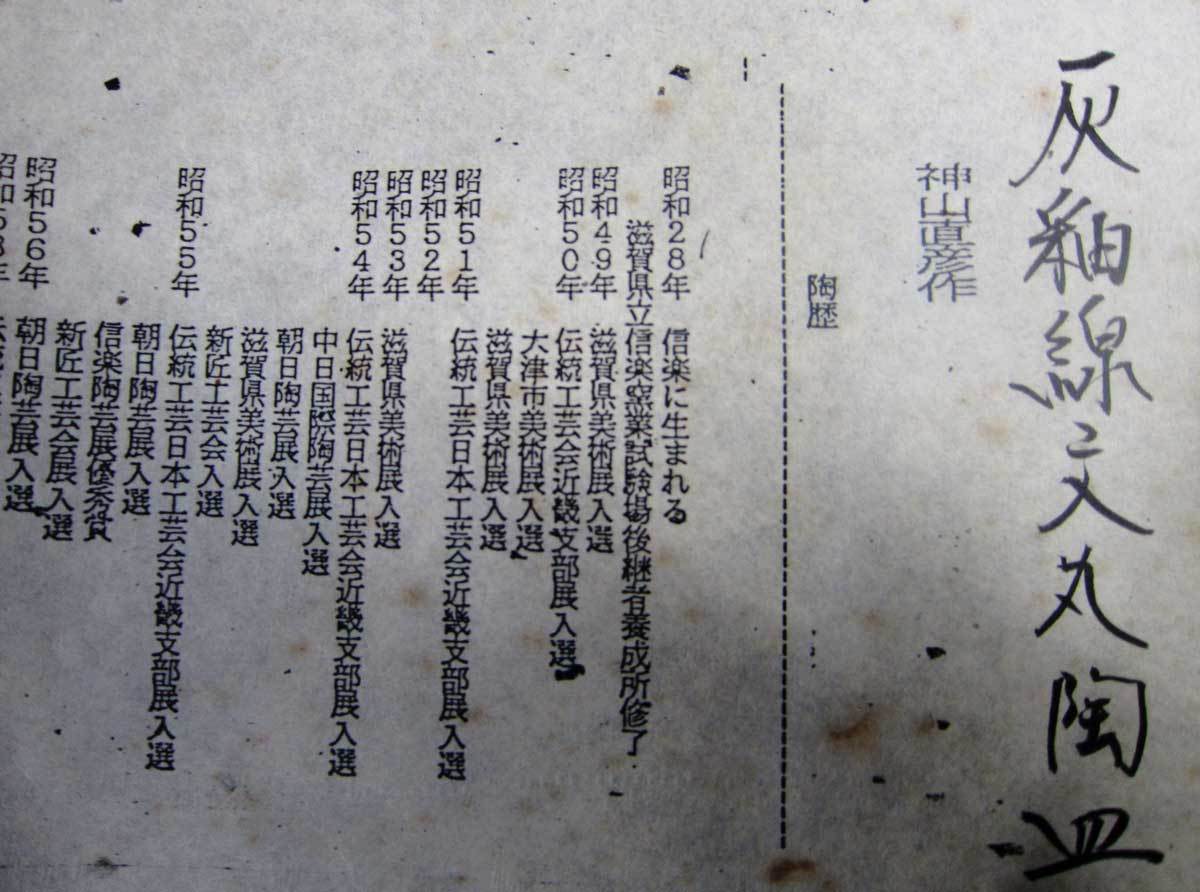 灰釉線文丸陶皿
神山直彦作
陶歴
昭和28年 信楽に生まれる
滋賀県立信楽窯業試験場後継者養成所修了
昭和49年 滋賀県美術展入選
昭和50年 伝統工芸会近畿支部展入選
大津市美術展入選
滋賀県美術展入選
昭和51年 伝統工芸日本工芸会近畿支部展入選
昭和52年
昭和53年 滋賀県美術展入選
昭和54年 伝統工芸日本工芸会近畿支部展入選
中日国際陶芸展入選
朝日陶芸展入選
滋賀県美術展入選
新匠工芸会入選
昭和55年 伝統工芸日本工芸会近畿支部展入選
朝日陶芸展入選
信楽陶芸展優秀賞
新匠工芸会展入選
昭和56年 朝日陶芸展入選
昭和58年